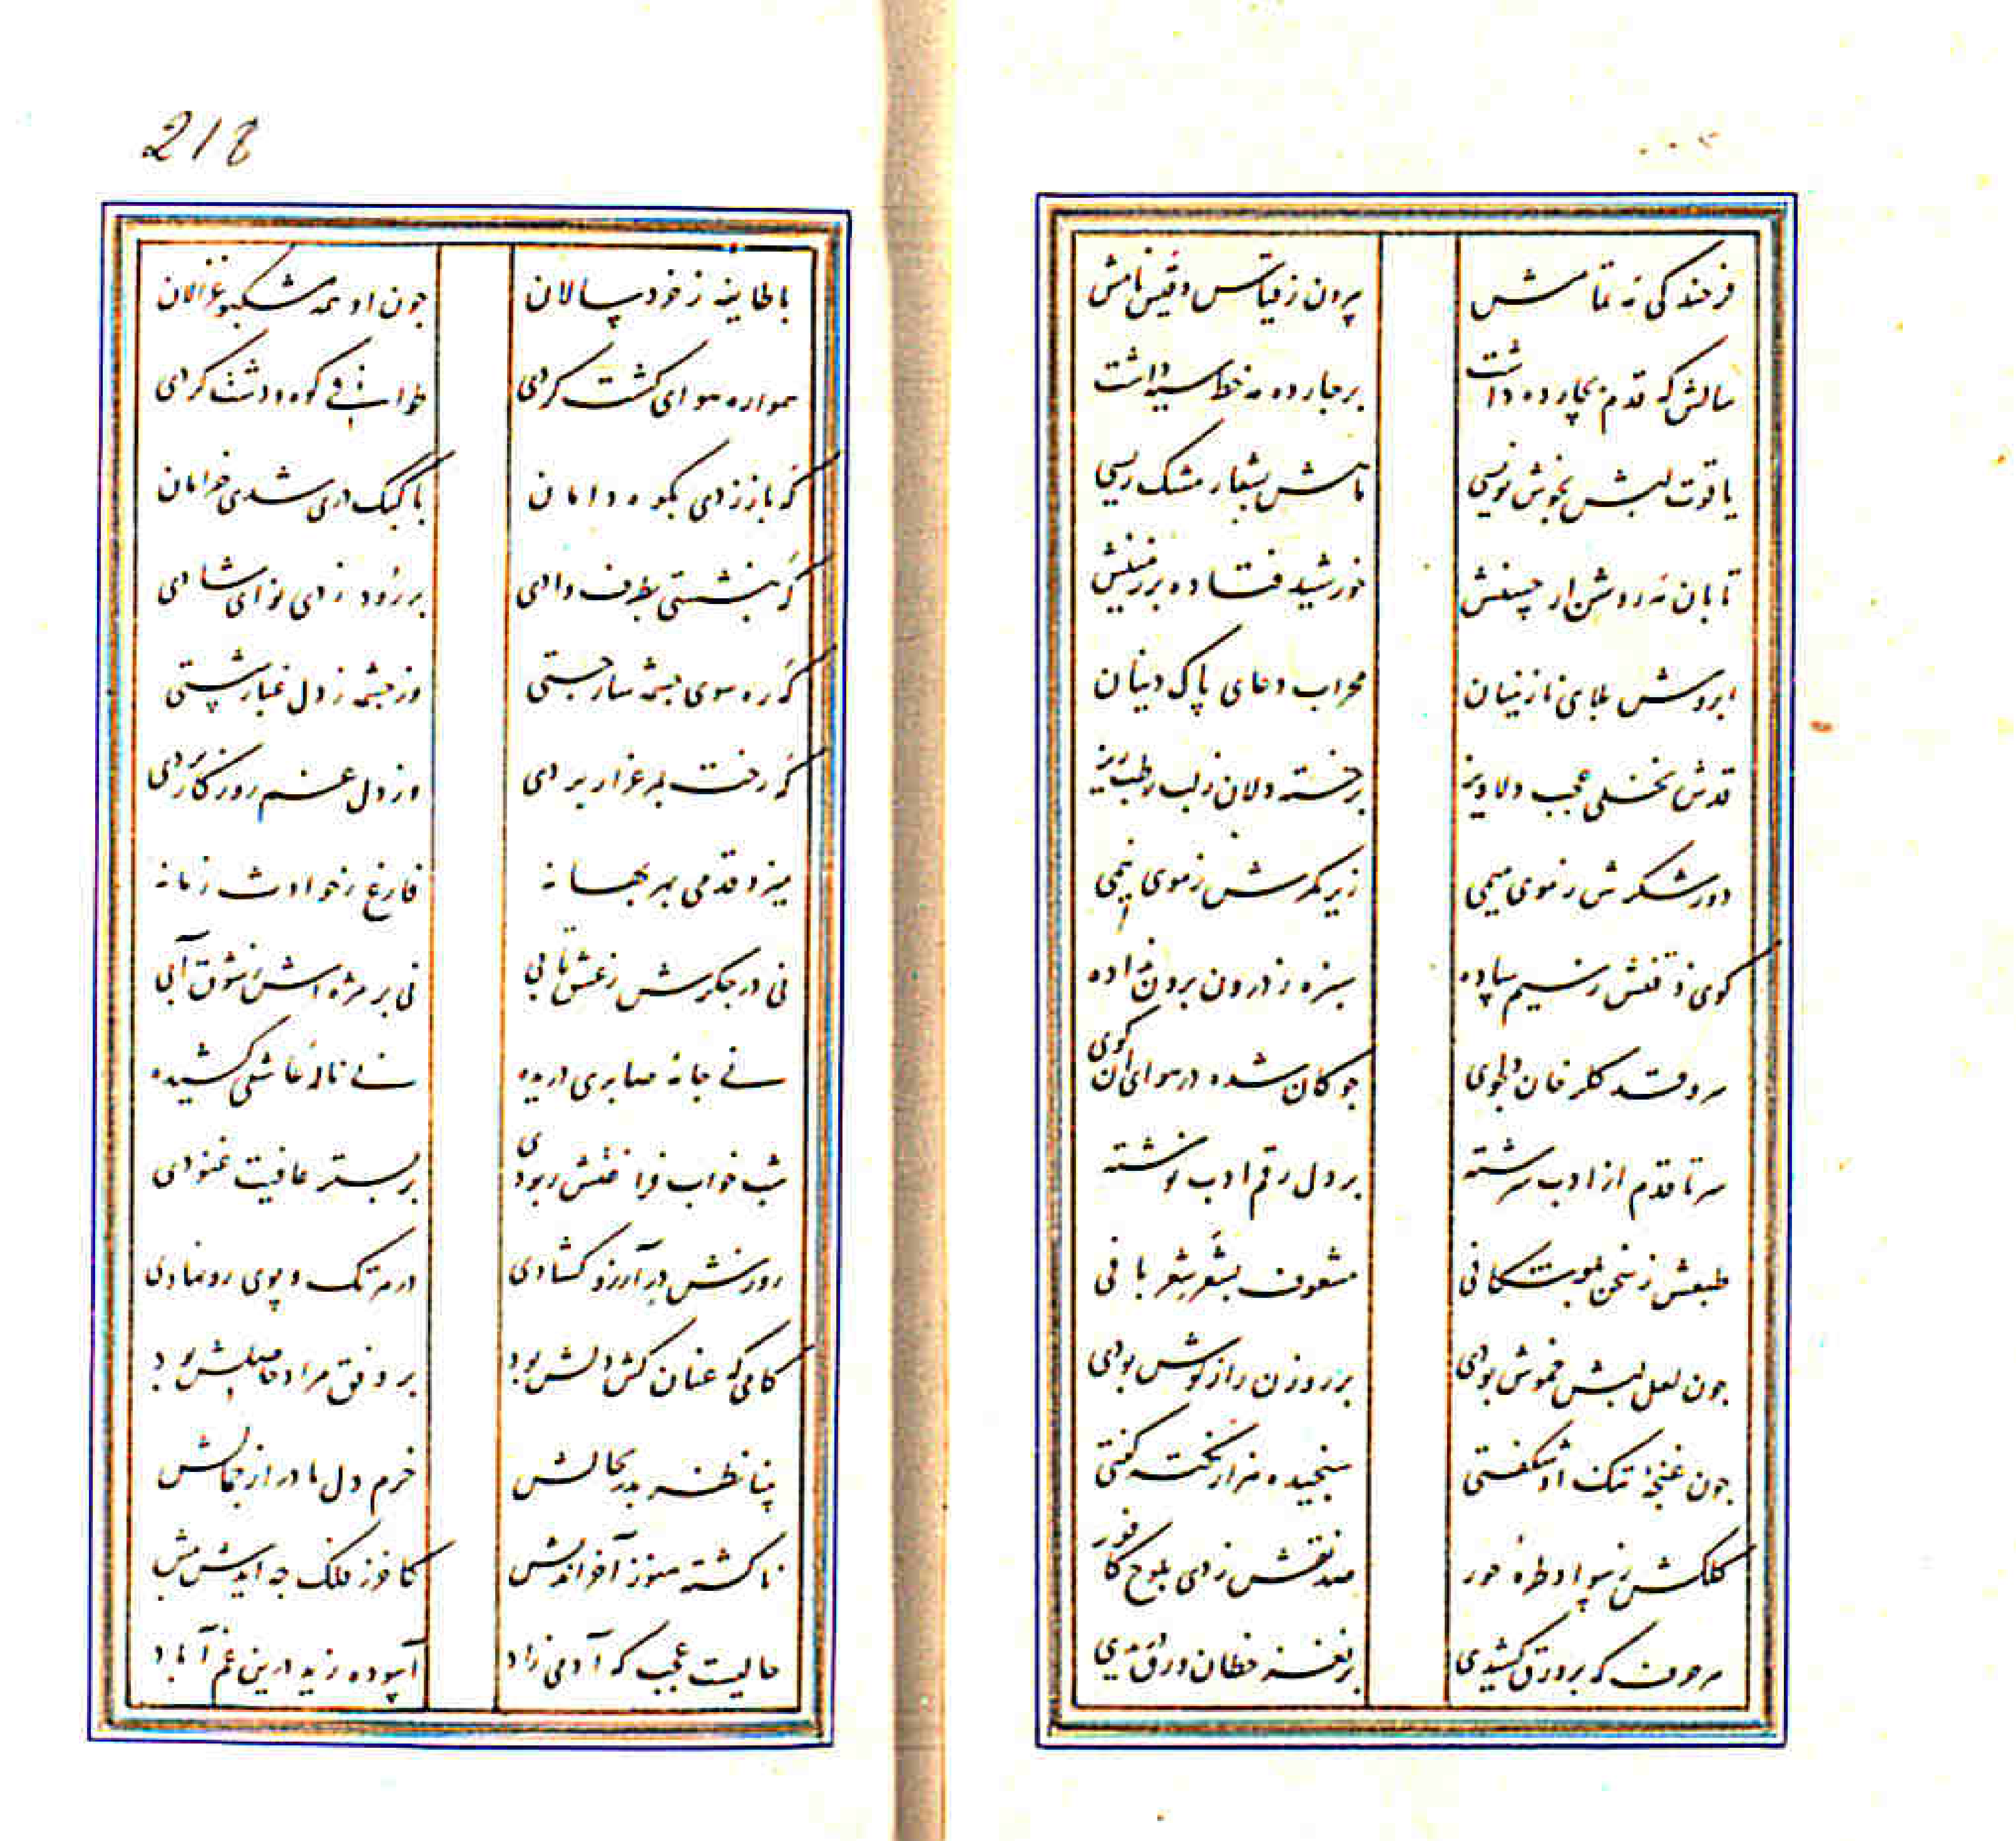 فرخندگی مه تمامش بیرون ز قیاس و قیس نامش
سالش که قدم بچارده داشت بر چارده مه خط سیه داشت
یاقوت لبش بخوش نویسی مامش بشعار مشک ریسی
تابان مه روشن از جبینش خورشید فتاده بر زمینش
ابروش بلای نازنینان محراب دعای پاک دینان
قدش نخلی عجب دلاویز بر خسته دلان ز لب رطب ریز
دور شکرش ز موی میمی زیر کمرش ز موی نیمی
گوی ذقنش ز سیم ساده سبزه ز درون برون نداده
سرو قد گلرخان دلجوی چوگان شده در هوای آن گوی
سر تا قدم از ادب سرشته بر دل رقم ادب نوشته
طبعش ز سخن بموشکافی مشعوف بشعر شعر بافی
چون لعل لبش خموش بودی بر روزن راز گوش بودی
چون غنچه تنک او شکفتی سنجیده هزار نکته گفتی
کلکش ز سواد طره حور صد نقش زدی بلوح کافور
هر حرف که بر ورق کشیدی بر نغز خطان ورق دریدی
218
با طایفه ز خردسالان چون او همه مشکبو غزالان
همواره هوای گشت کردی طوافی کوه و دشت کردی
گه باز زدی بکوه دامان با کبک دری شدی خرامان
گه بنشستی بطرف وادی بر رود زدی نوای شادی
گه ره سوی چشمه سار جستی وز چشمه ز دل غبار شستی
گه رخت بمرغزار بردی وز دل غم روزگار بردی
میزد قدمی بهر بهانه فارغ ز حوادث زمانه
نی در جگرش ز عشق تابی نی بر مژه‌اش ز شوق آبی
نی جامه صابری دریده نی ناله عاشقی کشیده
شب خواب فراغتش ربودی بر بستر عافیت غنودی
روزش در آرزو گشادی در هر تک و پوی رو نهادی
کامی که عنان کش دلش بود بر وفق مراد حاصلش بود
بینا نظر پدر بحالش خرم دل مادر از جمالش
ناگشته هنوز آخر اندیش کآخر ز فلک چه آیدش پیش
حالیست عجب که آدمی زاد آسوده زید درین غم آباد